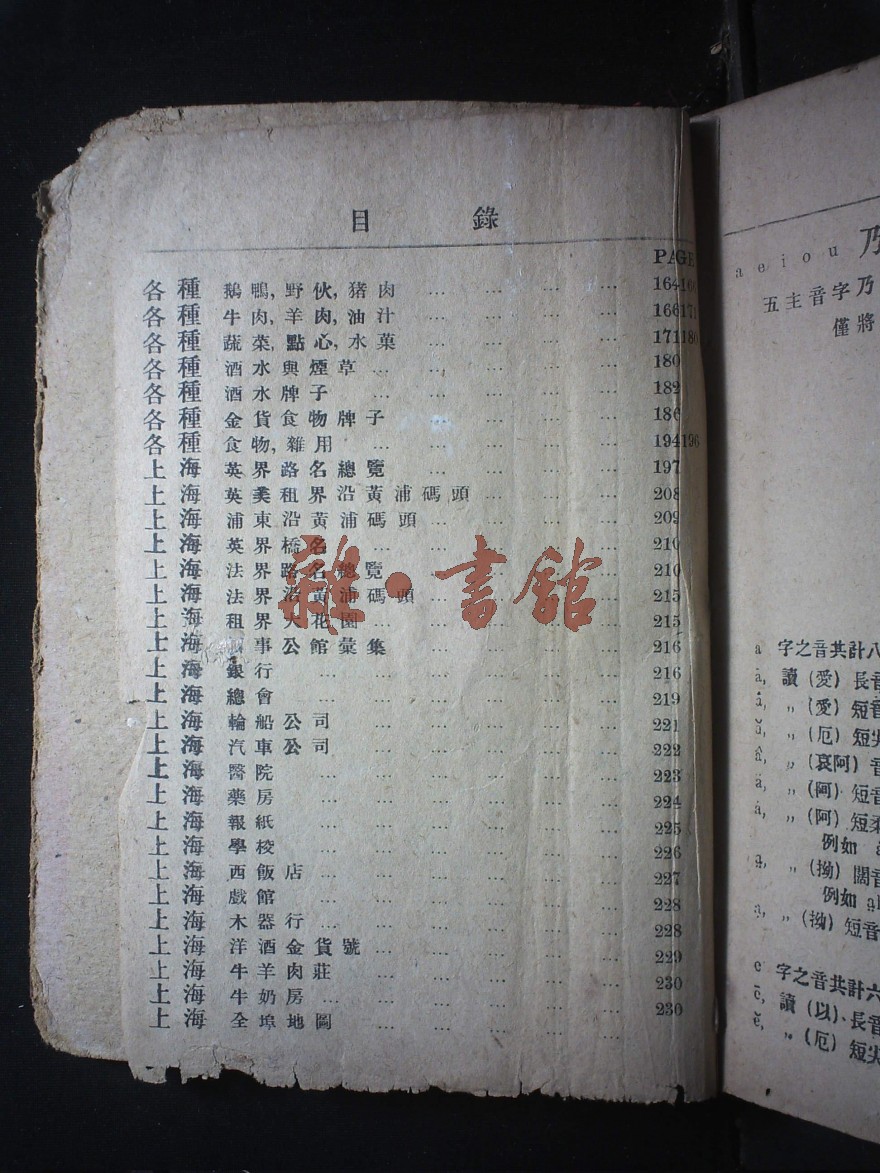 目 錄
PAGE
各種 鵝鴨,野伙,猪肉 ... ... ... ... ... 164166
各種 牛肉,羊肉,油汁 ... ... ... ... ... 166171
各種 蔬菜,點心,水菓 ... ... ... ... ... 171180
各種 酒水與煙草 ... ... ... ... ... 180
各種 酒水牌子 ... ... ... ... ... 182
各種 金貨食物牌子 ... ... ... ... ... 186
各種 食物,雜用 ... ... ... ... ... 194196
上海 英界路名總覽 ... ... ... ... ... 197
上海 英美租界沿黃浦碼頭 ... ... ... ... 208
上海 浦東沿黃浦碼頭 ... ... ... ... 209
上海 英界橋名 ... ... ... ... ... 210
上海 法界路名總覽 ... ... ... ... 210
上海 法界沿黃浦碼頭 ... ... ... ... 215
上海 租界大花園 ... ... ... ... 215
上海 事公館彙集 ... ... ... ... 216
上海 銀行 ... ... ... ... ... ... 216
上海 總會 ... ... ... ... ... ... 219
上海 輪船公司 ... ... ... ... ... 221
上海 汽車公司 ... ... ... ... ... 222
上海 醫院 ... ... ... ... ... ... 223
上海 藥房 ... ... ... ... ... ... 224
上海 報紙 ... ... ... ... ... ... 225
上海 學校 ... ... ... ... ... ... 226
上海 西飯店 ... ... ... ... ... 227
上海 戲館 ... ... ... ... ... ... 228
上海 木器行 ... ... ... ... ... ... 228
上海 洋酒金貨號 ... ... ... ... ... 229
上海 牛羊肉莊 ... ... ... ... ... 230
上海 牛奶房 ... ... ... ... ... 230
上海 全埠地圖 ... ... ... ... ...
雜·書館
a e i o u 乃
五主音字乃
僅將
a 字之音共計八
ā, 讀(愛)長音
〃(愛)短音
ă, 〃(厄)短尖
â, 〃(哀阿)音
ä, 〃(阿)短音
ȧ, 〃(阿)短柔
例如
a̤, 〃(拗)闊音
例如
〃(拗)短音
e 字之音共計六
ē, 讀(以)長音
ĕ, 〃(厄)短尖